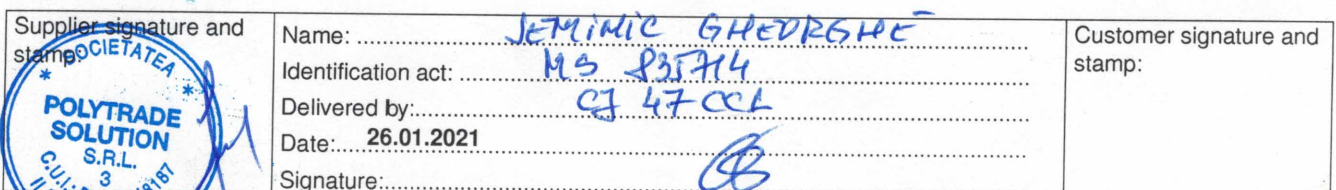 Supplier signature and
stamp:
SOCIETATEA
POLYTRADE
SOLUTION
S.R.L.
3
C.U.I.:
Name: JEMINIC GHEORGHE
Identification act: MS 835714
Delivered by: CJ 47 CCL
Date: 26.01.2021
Signature:
Customer signature and
stamp: